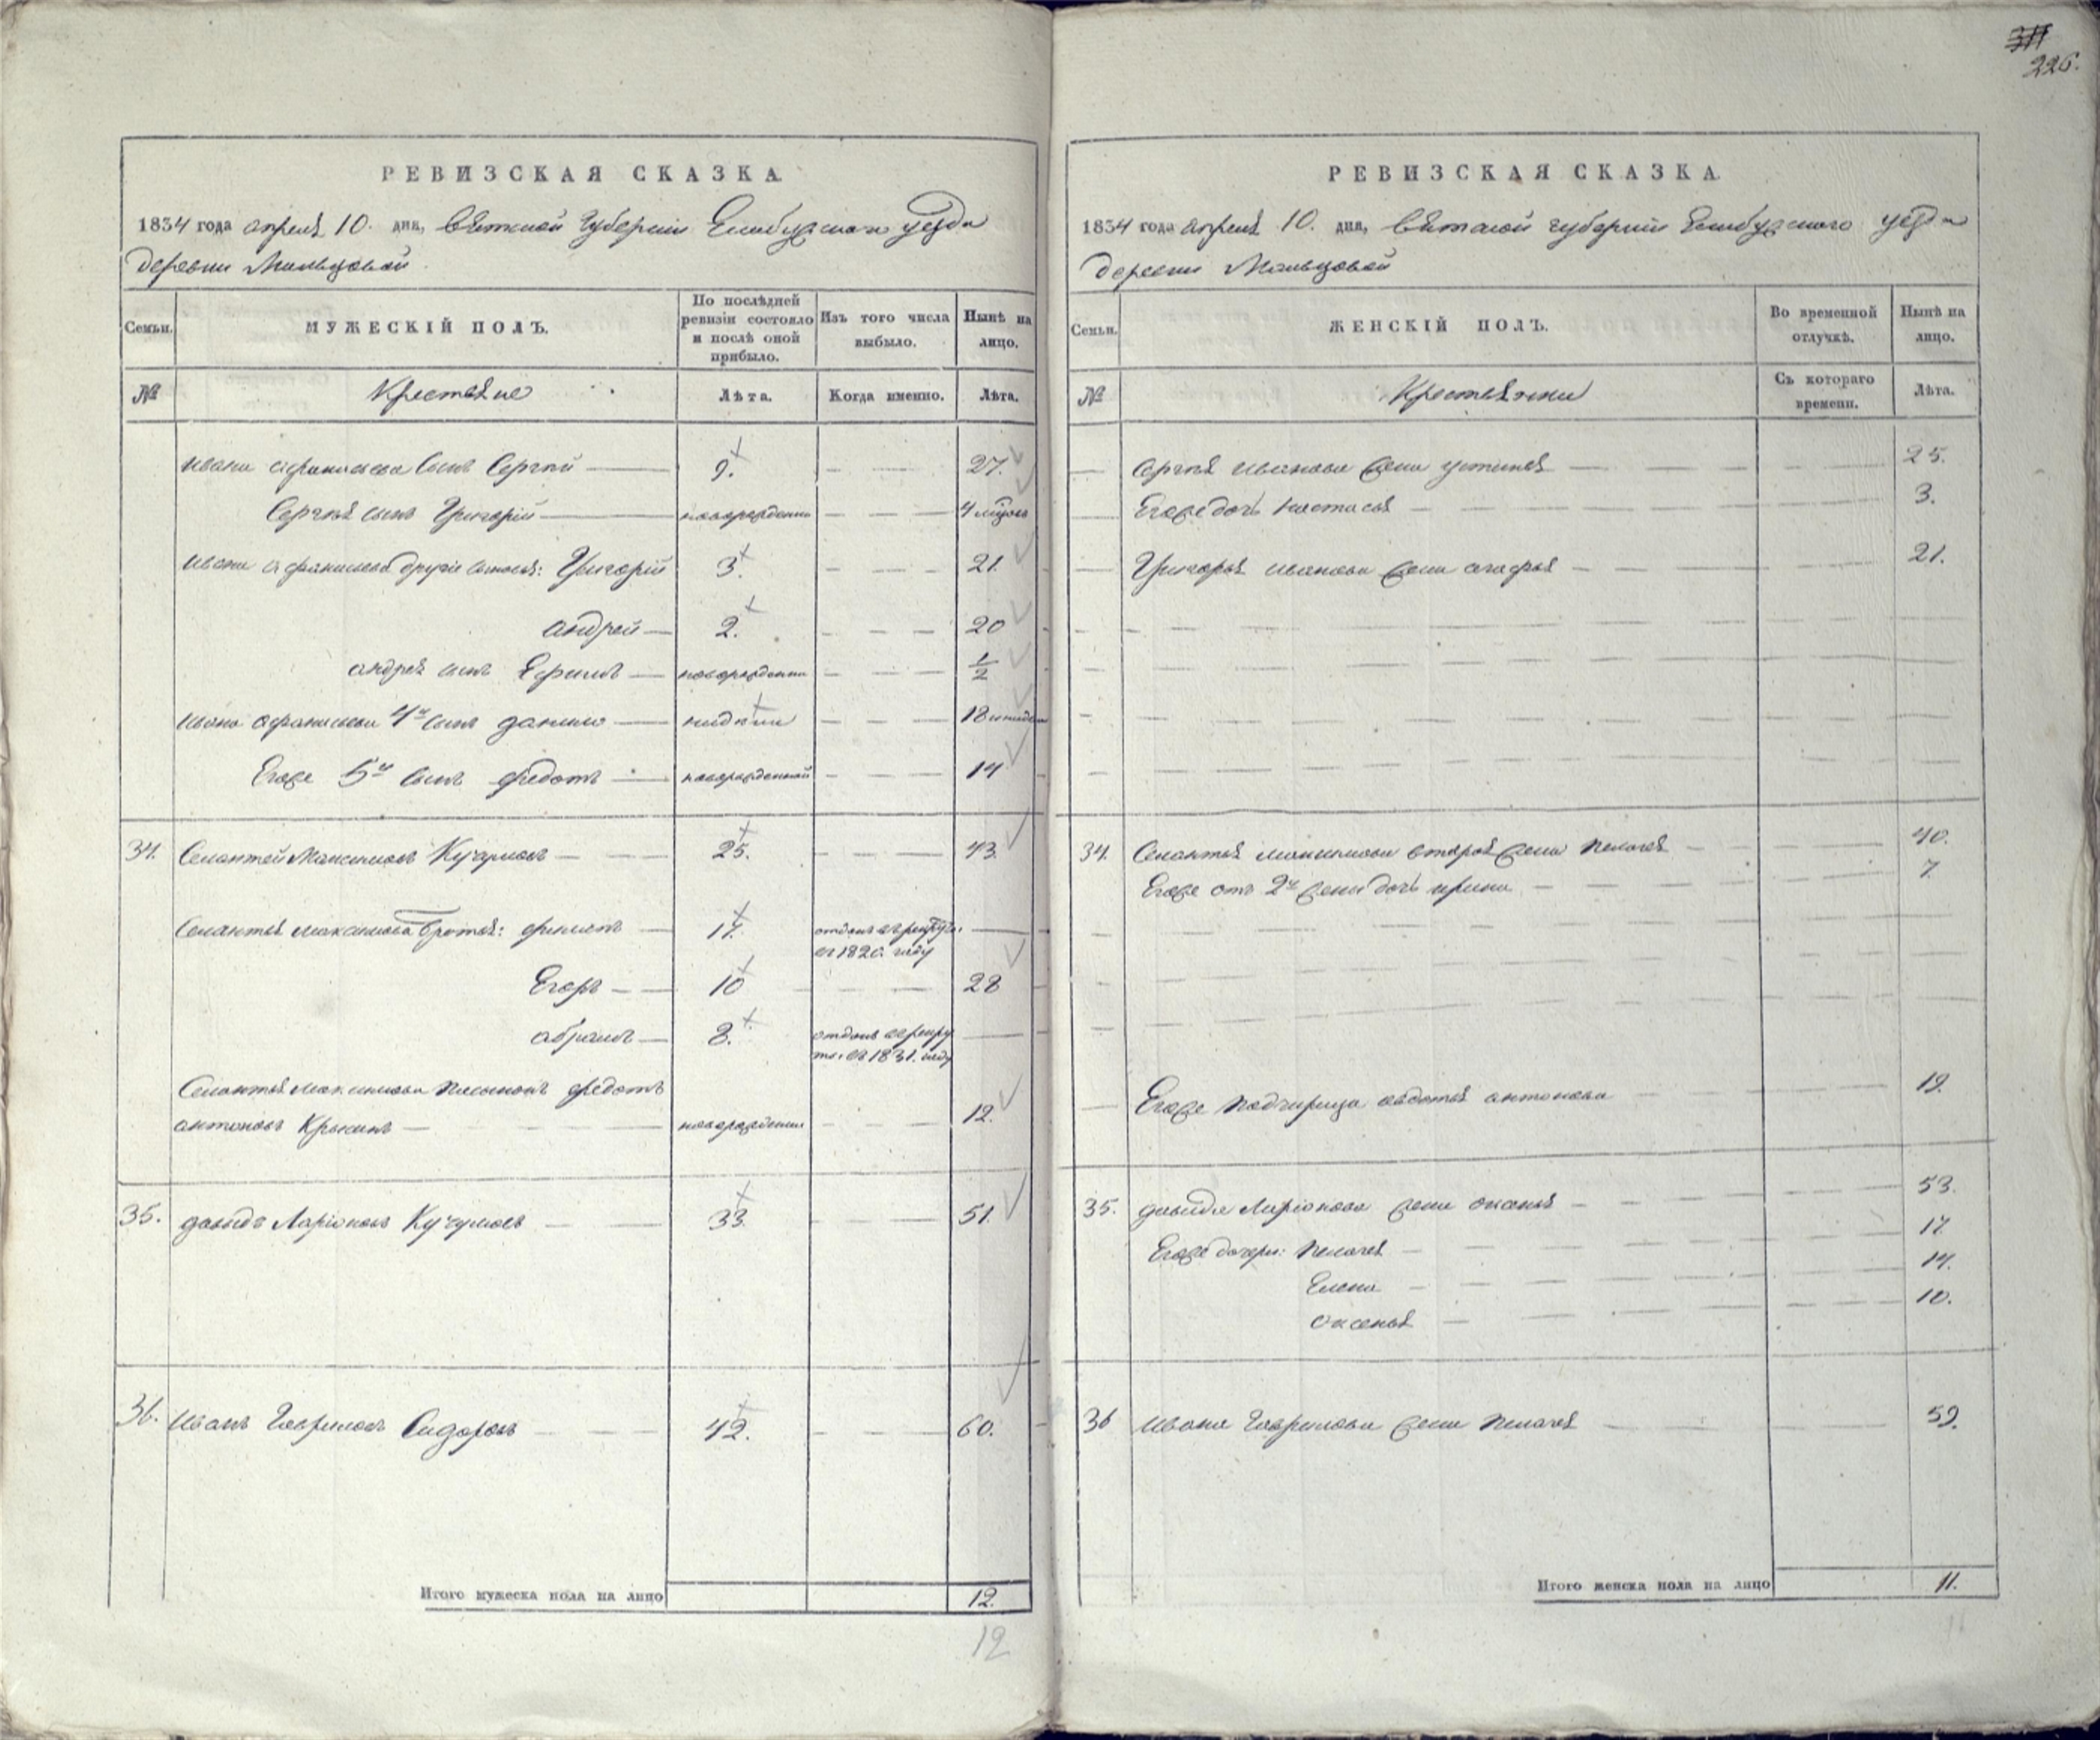 226.
РЕВИЗСКАЯ СКАЗКА.
1834 года апреля 10. дня, Вятской Губернии Елабужскаго уезда
деревни Мальцовой
Семьи.
МУЖЕСКІЙ ПОЛЪ.
По послѣдней ревизіи состояло и послѣ оной прибыло.
Изъ того числа выбыло.
Нынѣ на лицо.
№
Крестьяне
Лѣта.
Когда именно.
Лѣта.
Ивана Афанасьева сынъ Сергей 9. 27.
Сергея сынъ Григорій новорожденн 4 мѣсец
Ивана Афанасьева другіе сыновья: Григорій 3. 21.
Андрей 2. 20
Андрея сынъ Ефимъ новорожденн 1/2
Ивана Афанасьева 4й сынъ Данило 18
Егоже 5й сынъ Федотъ новорожденной 14
34. Силантей Максимовъ Кучумовъ 25. 43.
Силантья Максимова братья: Филипъ 17. отданъ в рекруты в 1820. году
Егоръ 10 28
Абрамъ 8. отданъ в рекруты в 1831. году
Силантья Максимова пасынокъ Федотъ
Антоновъ новорожденн 12.
35. Давыдъ Ларіоновъ Кучумовъ 33. 51.
36. Иванъ Гавриловъ Сидоровъ 42. 60.
Итого мужеска пола на лицо 12.
12
РЕВИЗСКАЯ СКАЗКА.
1834 года апреля 10. дня, Вятской губернии Елабужскаго уезда
деревни Мальцовой
Семьи.
ЖЕНСКІЙ ПОЛЪ.
Во временной отлучкѣ.
Нынѣ на лицо.
№
Крестьянки
Съ котораго времени.
Лѣта.
Сергея Иванова жена Устинья 25.
Егоже дочь Настасья 3.
Григорья Иванова жена Агафья 21.
34. Силантья Максимова вторая жена Пелагея 40.
Егоже отъ 2й жены дочь Ирина 7.
Егоже падчерица Авдотья Антонова 19.
35. Давыда Ларіонова жена Оксинья 53.
Егоже дочери: Пелагея 17.
Елена 14.
Оксинья 10.
36 Ивана Гаврилова жена Пелагея 59.
Итого женска пола на лицо 11.